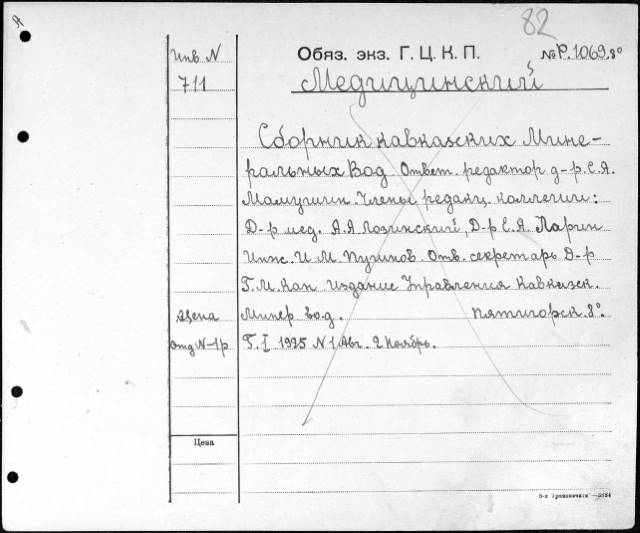 Я
82
Инв. N
711
Обяз. экз. Г. Ц. К. П.
№ Р. 1069. 8°
Медицинский
Сборник кавказских Мине-
ральных Вод Ответ. редактор д-р. С.Я.
Мамушин. Члены редакц. коллегии:
Д-р мед. А.А Лозинский, Д-р С.Я. Ларин
Инж. И. М. Пугинов. Отв. секретарь Д-р
Г. М. Кан. Издание Управления Кавказск.
Минер вод. пятигорск. 8°.
Цена
отд N-1р
Г. I 1925 N 1 Авг. 2 Ноябрь.
Цена